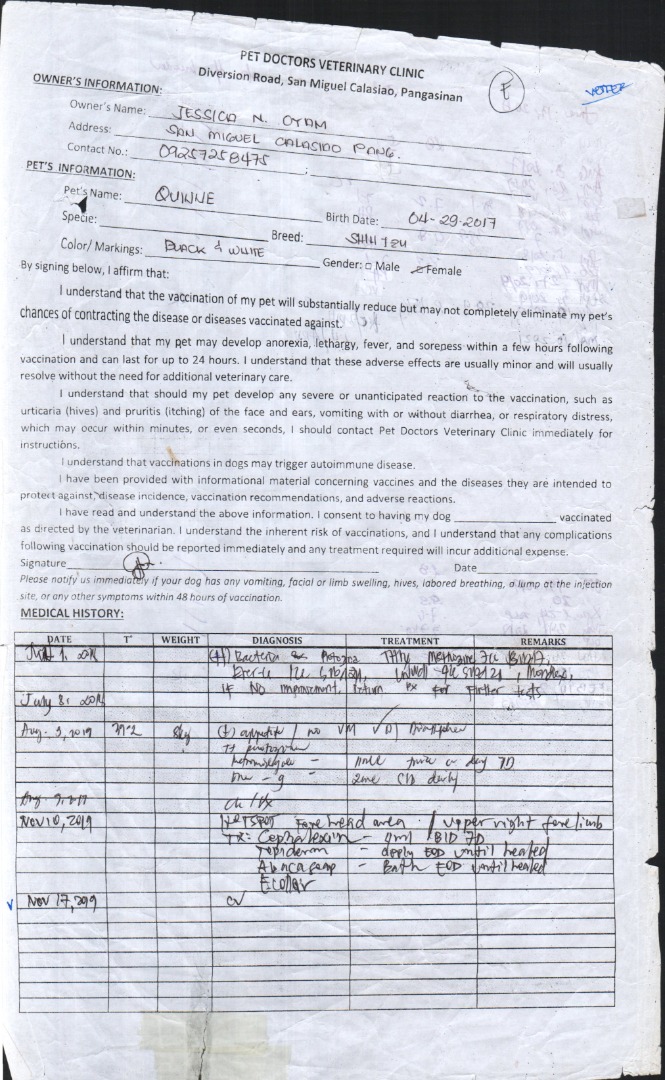 PET DOCTORS VETERINARY CLINIC
Diversion Road, San Miguel Calasiao, Pangasinan
F
VOTER
OWNER'S INFORMATION:
Owner's Name: JESSICA N. OYAM
Address: SAN MIGUEL CALASIAO PANG.
Contact No.: 09257258475 ;
PET'S INFORMATION:
Pet's Name: QUINNE
Birth Date: 04-29-2017
Specie: Breed: SHIH TZU
Color/ Markings: BLACK & WHITE Gender: Male Female
By signing below, I affirm that:
I understand that the vaccination of my pet will substantially reduce but may not completely eliminate my pet's
chances of contracting the disease or diseases vaccinated against.
I understand that my pet may develop anorexia, lethargy, fever, and soreness within a few hours following
vaccination and can last for up to 24 hours. I understand that these adverse effects are usually minor and will usually
resolve without the need for additional veterinary care.
I understand that should my pet develop any severe or unanticipated reaction to the vaccination, such as
urticaria (hives) and pruritis (itching) of the face and ears, vomiting with or without diarrhea, or respiratory distress,
which may occur within minutes, or even seconds, I should contact Pet Doctors Veterinary Clinic immediately for
instructions.
I understand that vaccinations in dogs may trigger autoimmune disease.
I have been provided with informational material concerning vaccines and the diseases they are intended to
protect against, disease incidence, vaccination recommendations, and adverse reactions.
I have read and understand the above information. I consent to having my dog vaccinated
as directed by the veterinarian. I understand the inherent risk of vaccinations, and I understand that any complications
following vaccination should be reported immediately and any treatment required will incur additional expense.
Signature Date
Please notify us immediately if your dog has any vomiting, facial or limb swelling, hives, labored breathing, a lump at the injection
site, or any other symptoms within 48 hours of vaccination.
MEDICAL HISTORY:
DATE T° WEIGHT DIAGNOSIS TREATMENT REMARKS
(+) Bacteria
IF NO improvement, return for further tests
July 8,
Aug. 3, 2019 (+) appetite / no
twice a day 7D
Nov 10, 2019 HOTSPOT Forehead area / upper right forelimb
TX: Cephalexin - BID 7D
Topiderm - apply EOD until healed
- Bath EOD until healed
Nov 17, 2019